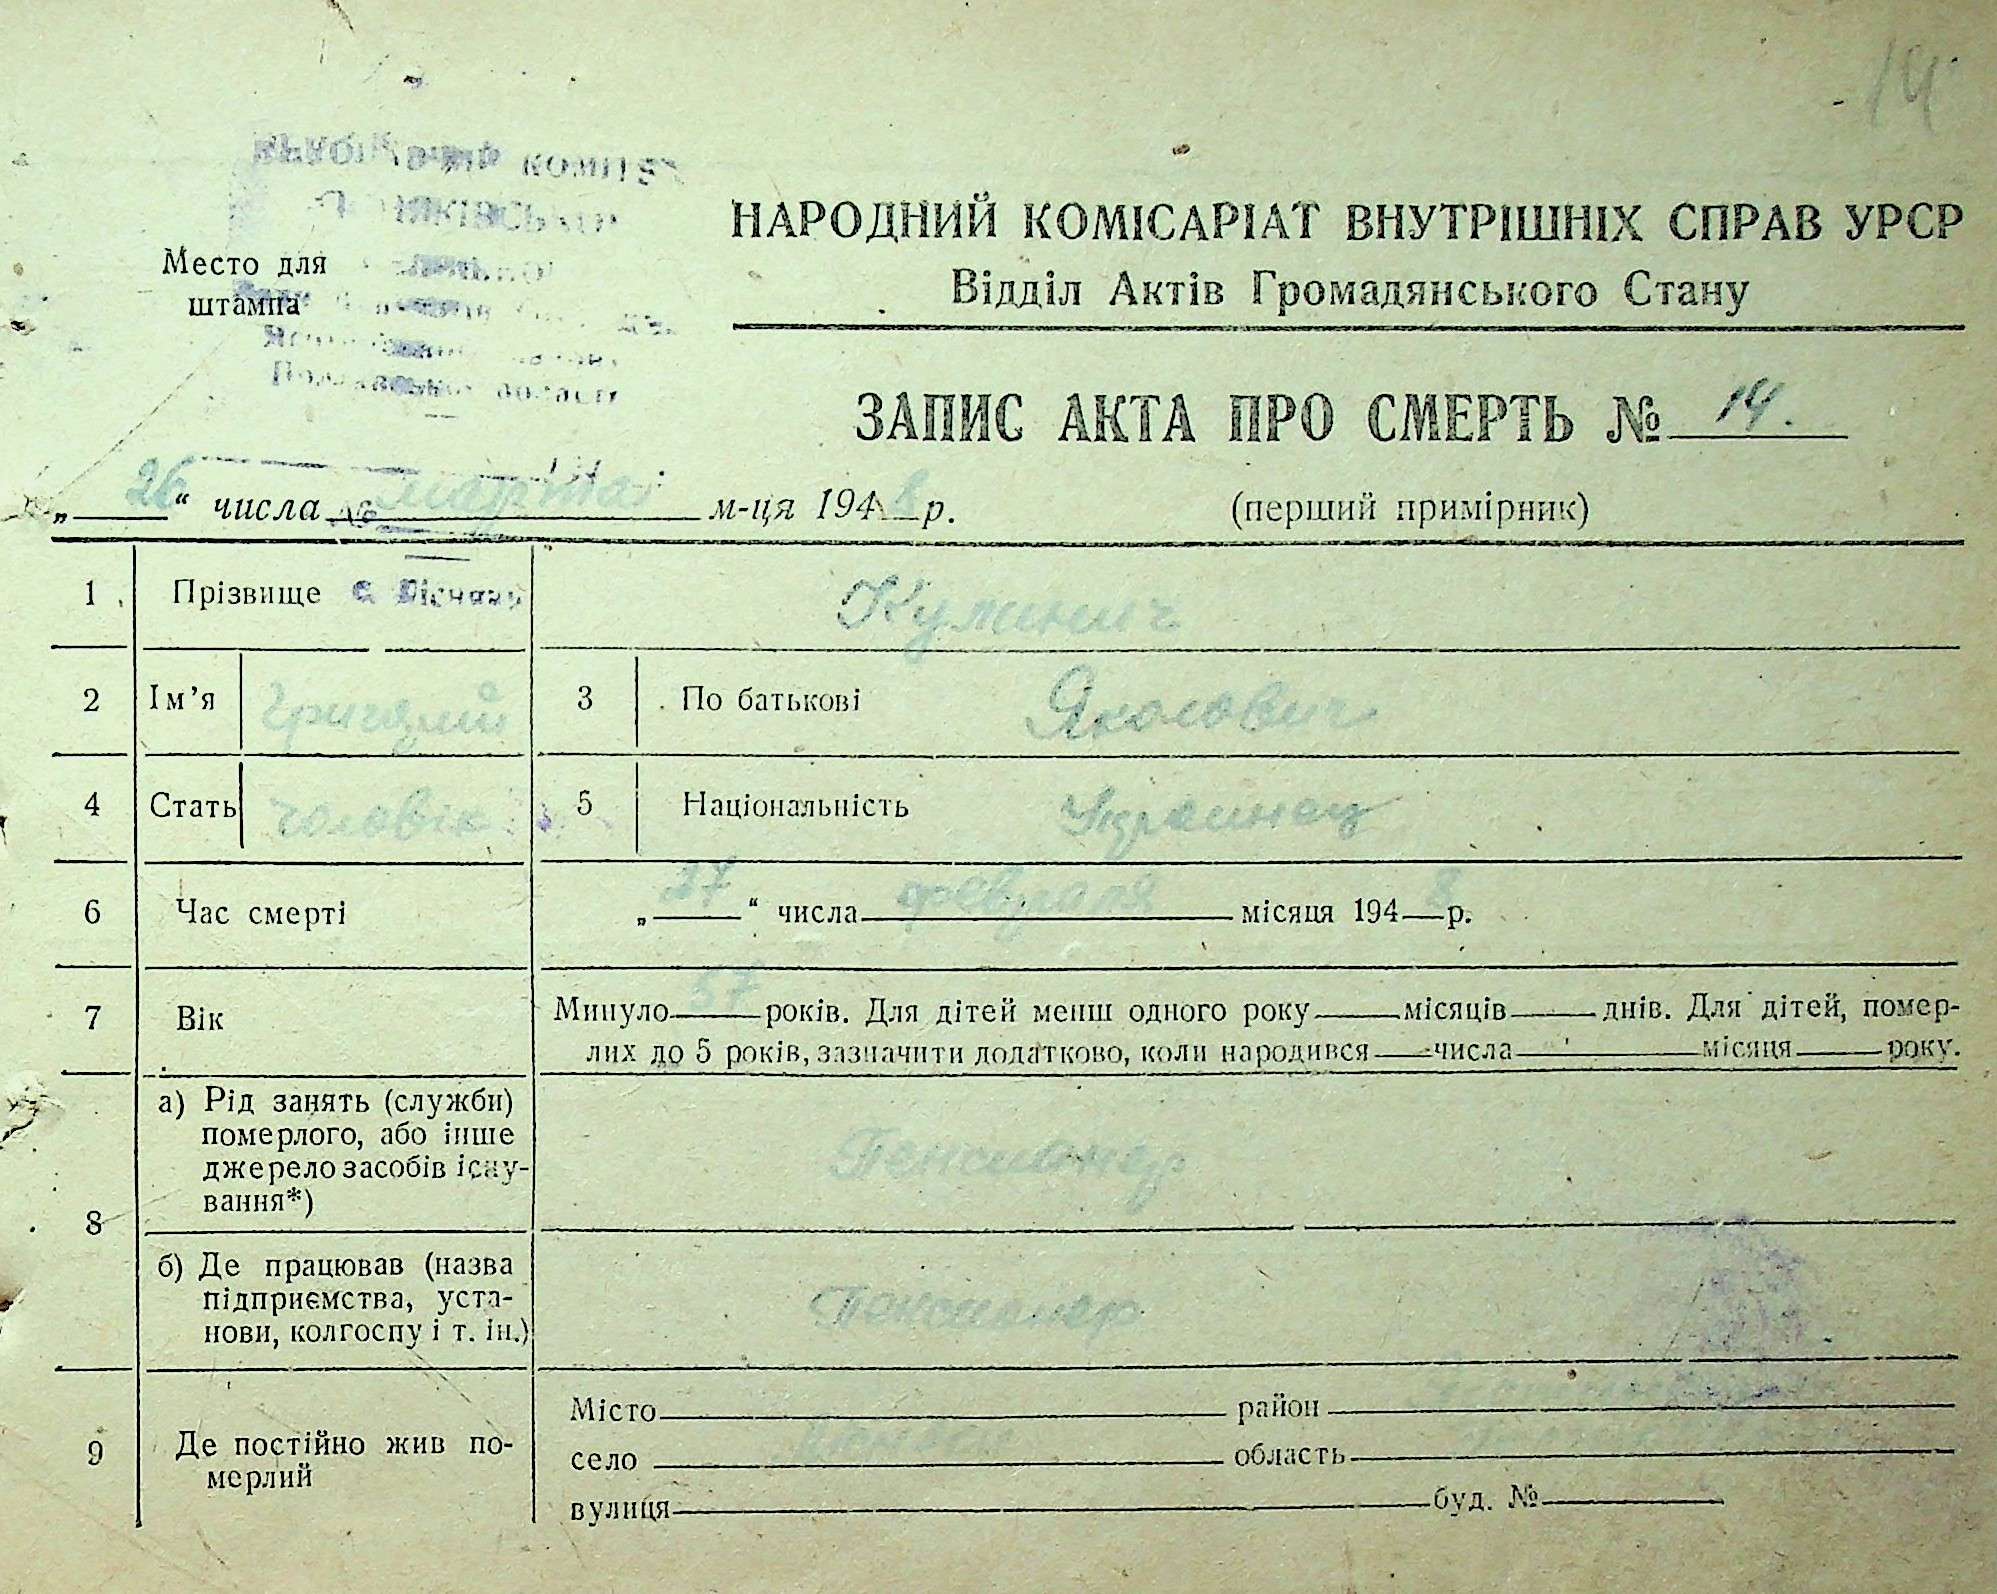 14
НАРОДНИЙ КОМІСАРІАТ ВНУТРІШНІХ СПРАВ УРСР
Відділ Актів Громадянського Стану
Место для
штампа
ЗАПИС АКТА ПРО СМЕРТЬ № 14.
„ 26 “ числа марта м-ця 1948 р. (перший примірник)
1 Прізвище
2 Ім’я Григорий 3 По батькові Яковович
4 Стать чоловік 5 Національність Украинец
6 Час смерті „ 27 “ числа февраля місяця 1948 р.
7 Вік Минуло 57 років. Для дітей менш одного року місяців днів. Для дітей, помер-
лих до 5 років, зазначити додатково, коли народився числа місяця року.
8 а) Рід занять (служби)
померлого, або інше
джерело засобів існу-
вання*) Пенсионер
б) Де працював (назва
підприємства, уста-
нови, колгоспу і т. ін.) Пенсионер
9 Де постійно жив по-
мерлий
Місто район
село область
вулиця буд. №